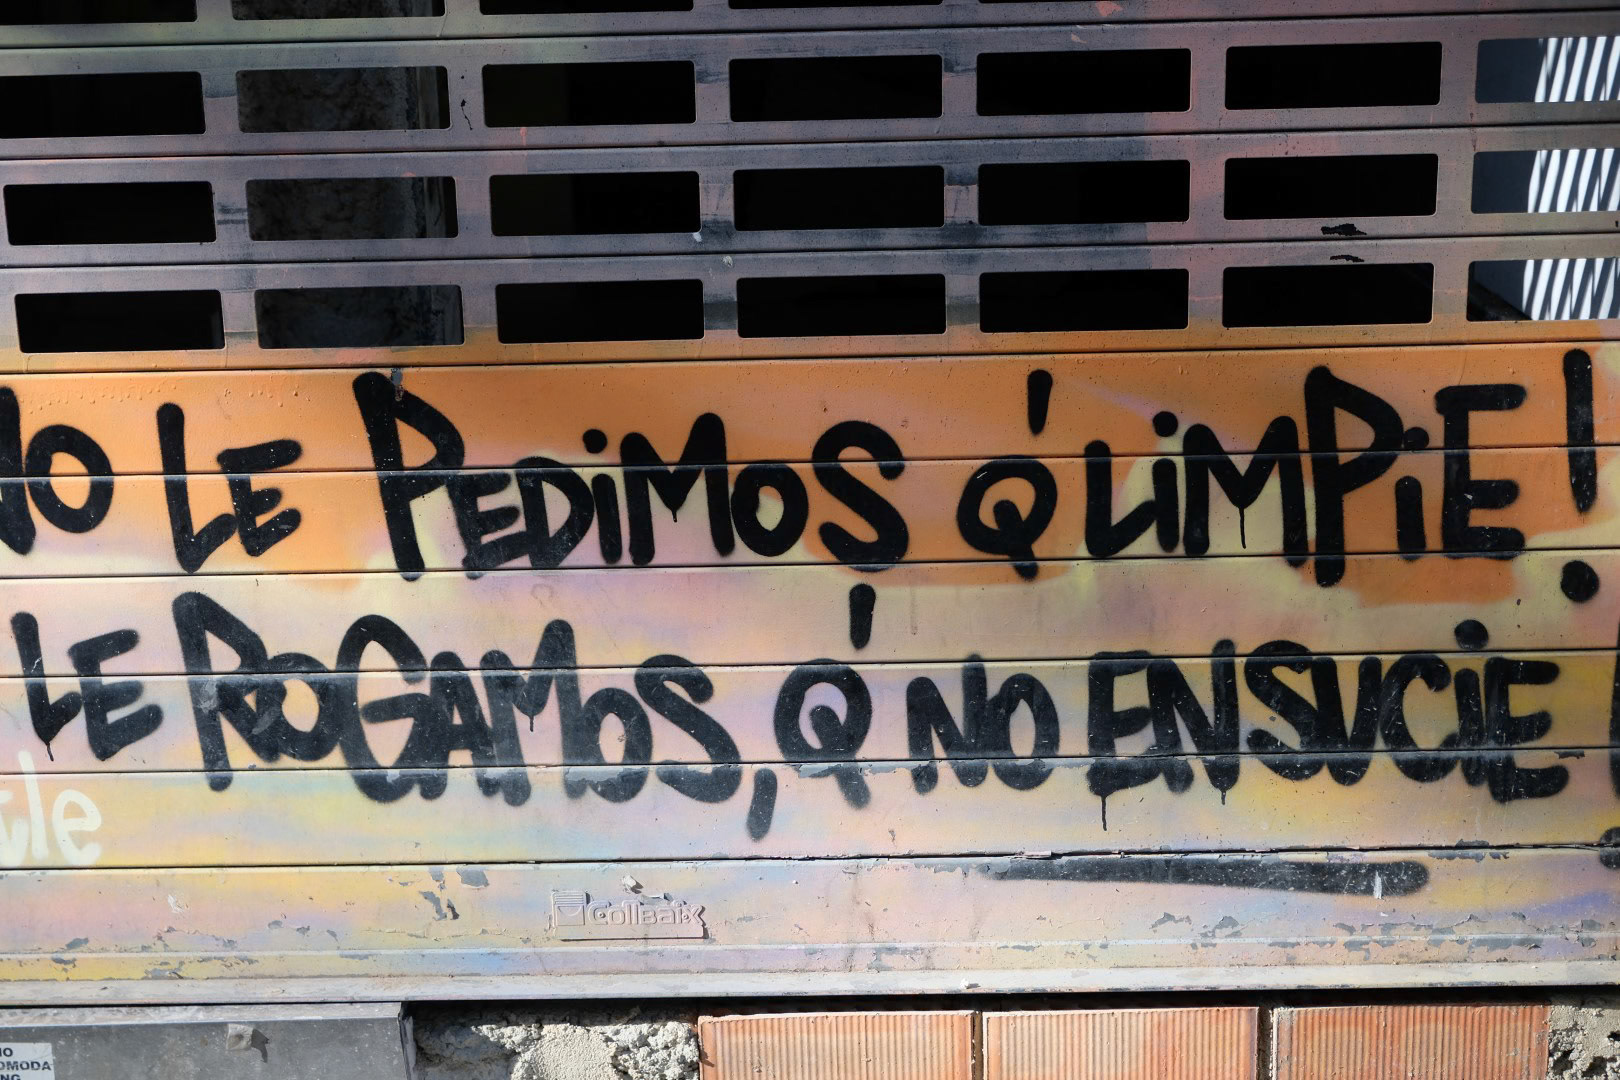 NO LE PEDiMOS Q'LiMPiE!
LE ROGAMOS, Q' NO ENSUCiE
le
CollBaix